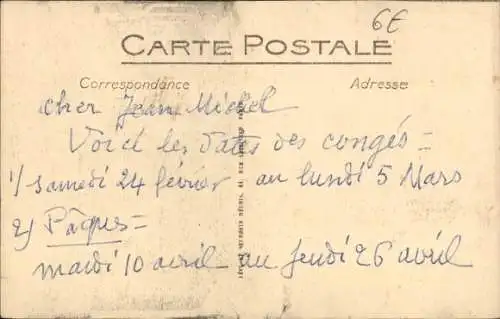 6€
CARTE POSTALE
Correspondance
Adresse
Cher Jean Michel
Voici les dates des congés =
1/ samedi 24 février au lundi 5 Mars
2/ Pâques =
mardi 10 avril au jeudi 26 avril